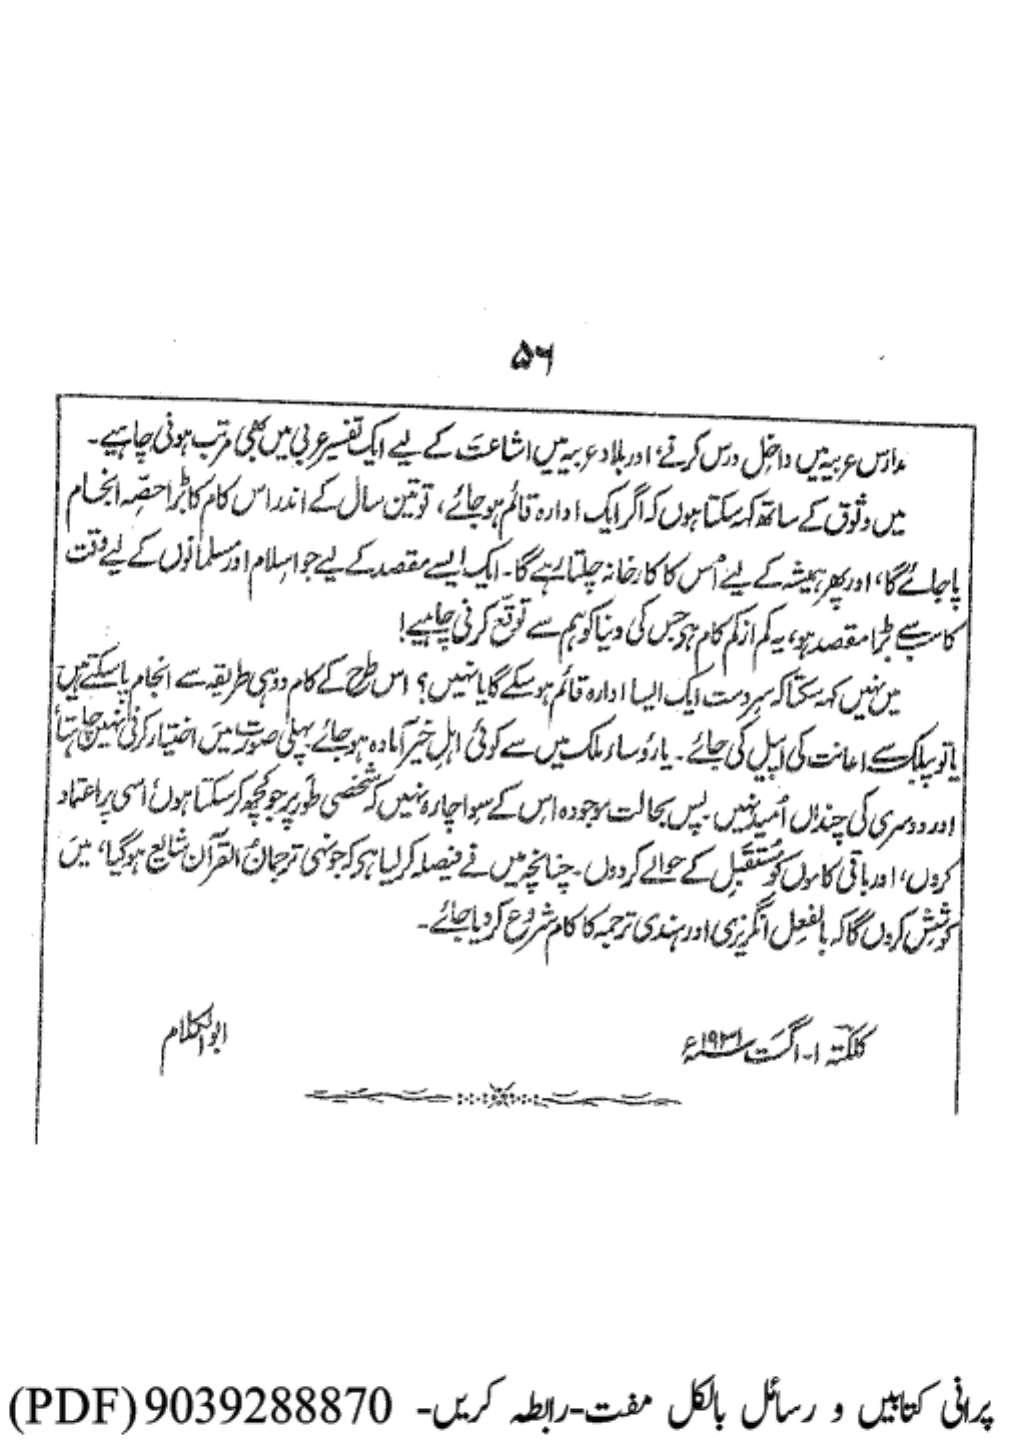 ۵۶
مدارس عربیہ میں داخل درس کرنے، اور بلاد عربیہ میں اشاعت کے لیے ایک تفسیر عربی میں بھی مرتب ہونی چاہیے۔
میں وثوق کے ساتھ کہہ سکتا ہوں کہ اگر ایک ادارہ قائم ہو جائے، تو تین سال کے اندر اس کام کا بڑا حصّہ انجام
پا جائے گا، اور پھر ہمیشہ کے لیے اُس کا کارخانہ چلتا رہے گا۔ ایک ایسے مقصد کے لیے جو اسلام اور مسلمانوں کے لیے وقت
کا سب سے بڑا مقصد ہو، یہ کم از کم کام ہے جس کی دنیا کو ہم سے توقّع کرنی چاہیے!
میں نہیں کہہ سکتا کہ سرِ دست ایک ایسا ادارہ قائم ہو سکے گا یا نہیں؟ اس طرح کے کام دو ہی طریقہ سے انجام پا سکتے ہیں
یا تو پبلک سے اعانت کی اپیل کی جائے۔ یا رؤساء ملک میں سے کوئی اہلِ خیر آمادہ ہو جائے پہلی صورت میں اختیار کرنی نہیں چاہتا
اور دوسری کی چنداں اُمید نہیں۔ پس بحالت موجودہ اس کے سوا چارہ نہیں کہ شخصی طور پر جو کچھ کر سکتا ہوں اسی پر اعتماد
کروں، اور باقی کاموں کو مُستقبِل کے حوالے کر دوں۔ چنانچہ میں نے فیصلہ کر لیا ہے کہ جونہی ترجمانُ القرآن شایع ہو گیا، میں
کوشش کروں گا کہ بالفعل انگریزی اور ہندی ترجمہ کا کام شروع کر دیا جائے۔
کلکتہ ۱-اگست سنہ ۱۹۳۱ء
ابوالکلام
پرانی کتابیں و رسائل بالکل مفت-رابطہ کریں- 9039288870 (PDF)